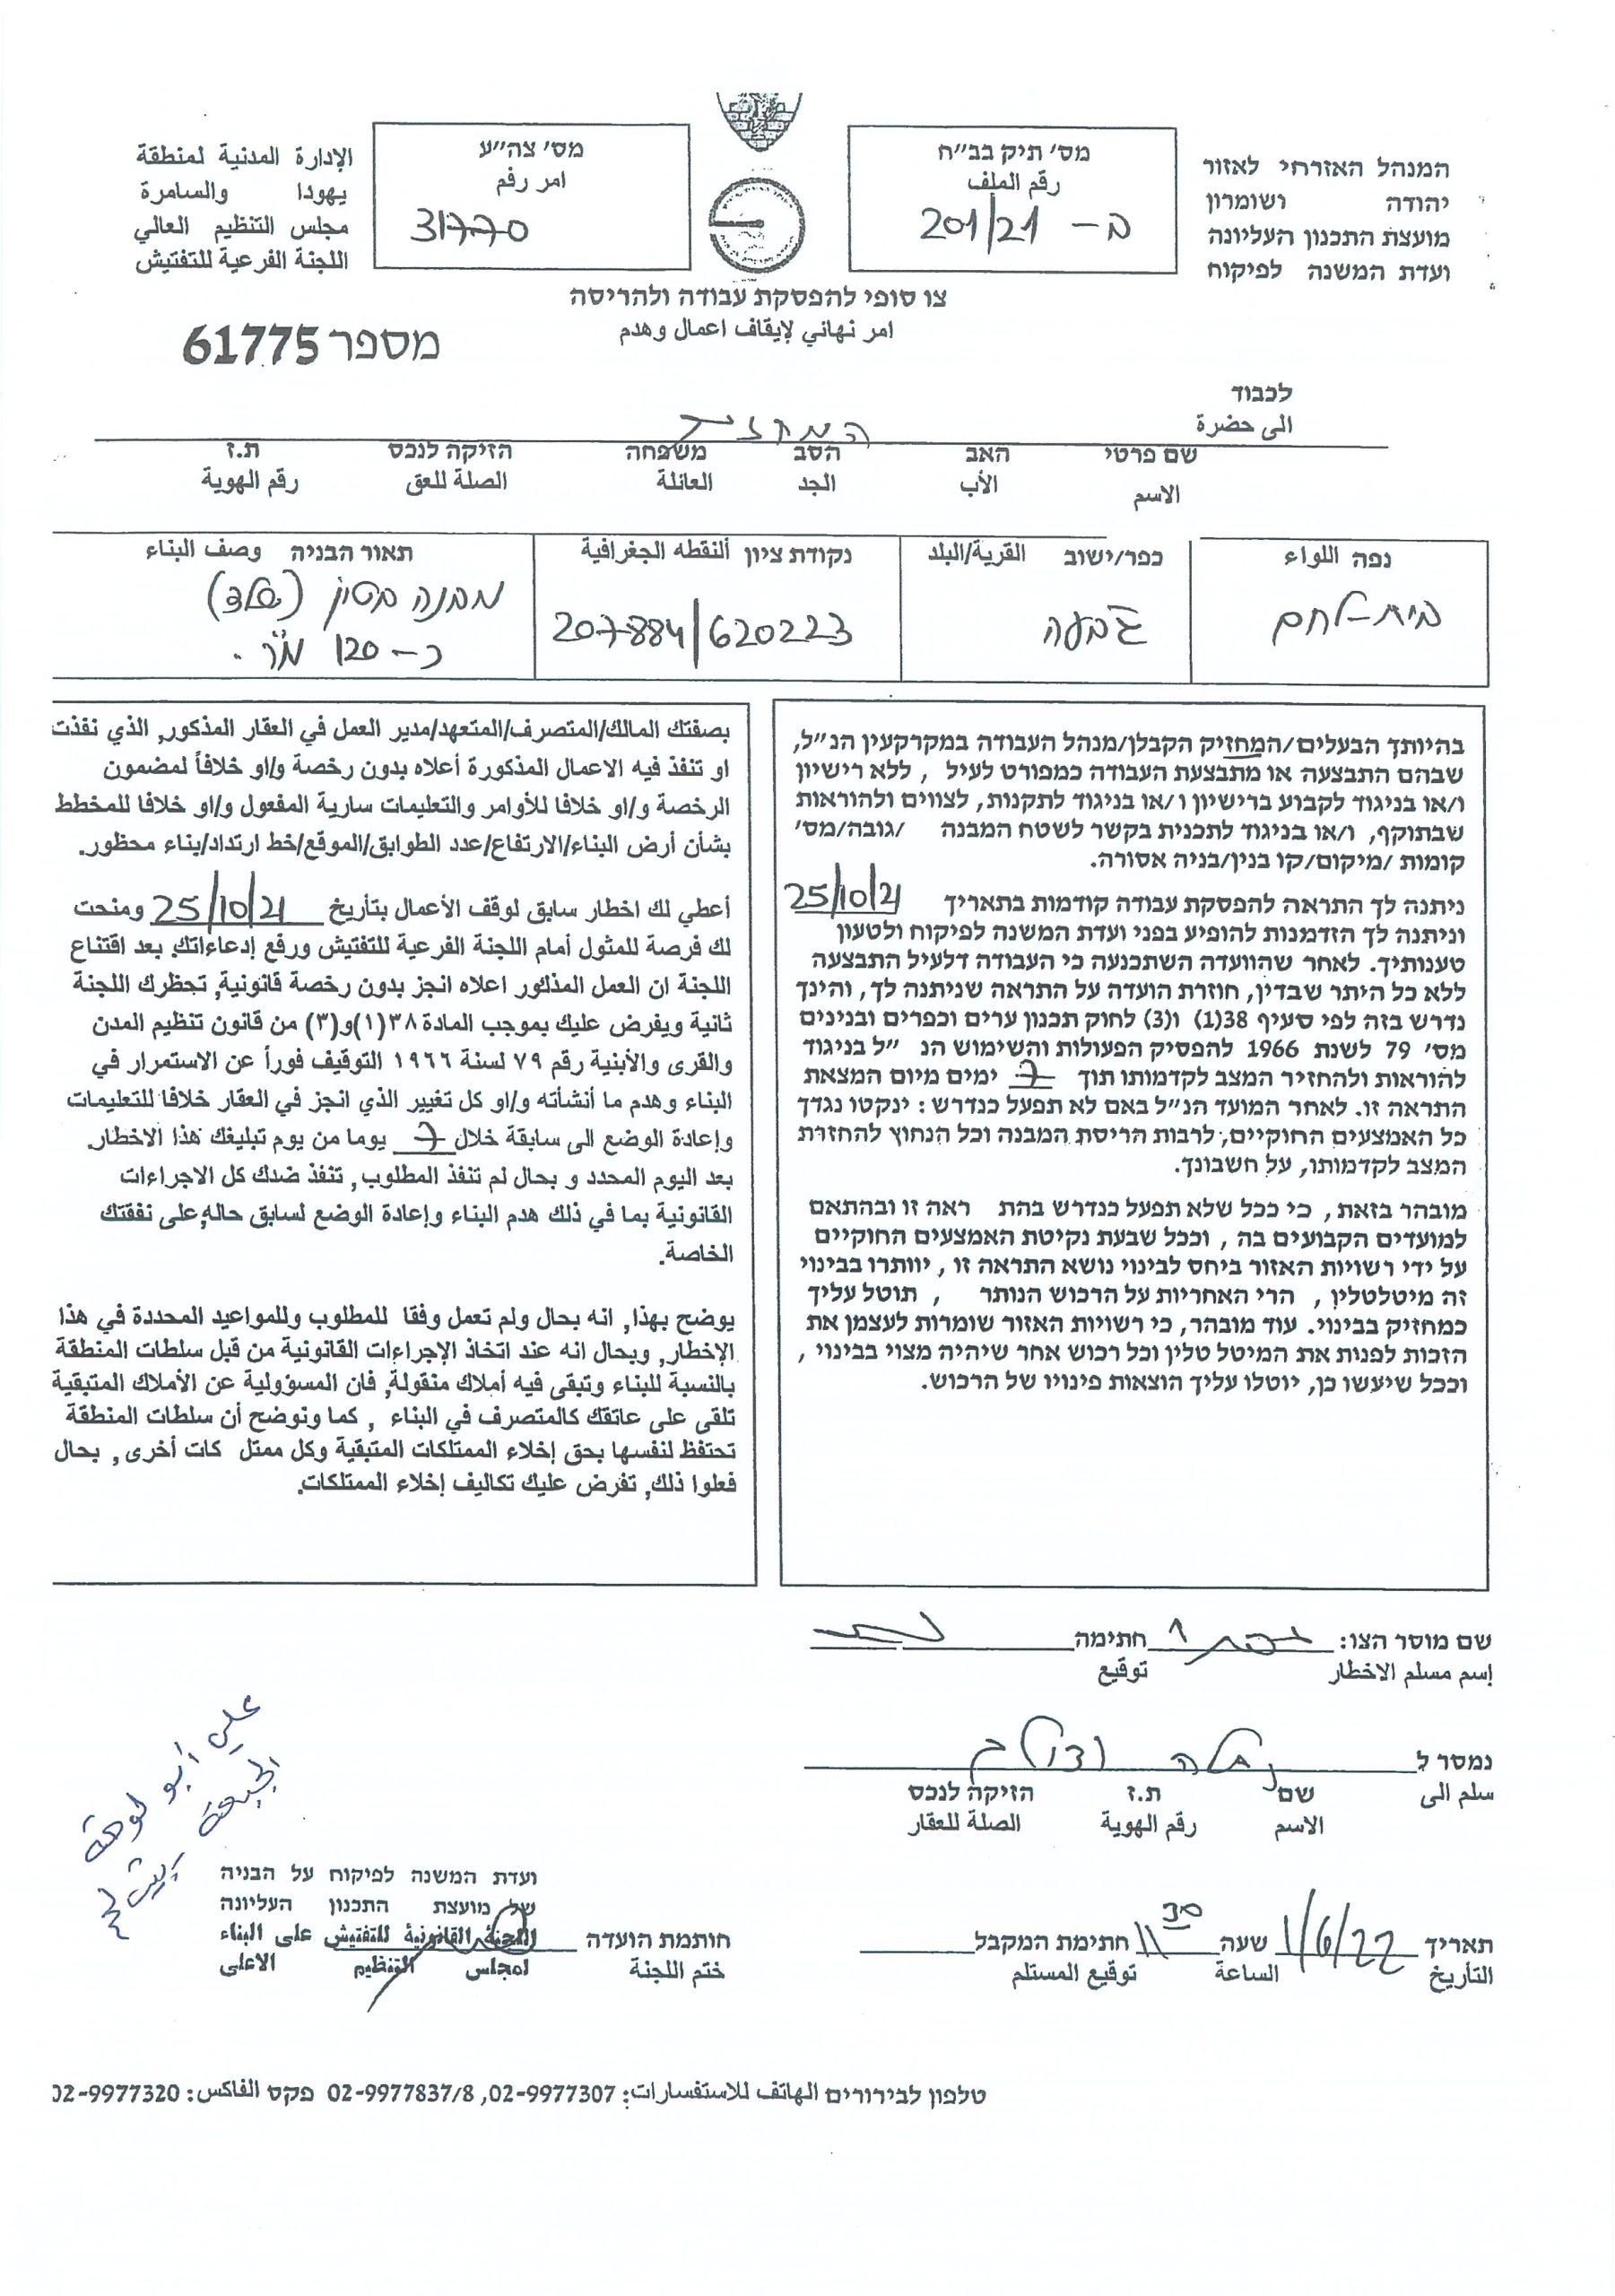 המנהל האזרחי לאזור
יהודה ושומרון
מועצת התכנון העליונה
ועדת המשנה לפיקוח
מס׳ תיק בב״ח
رقم الملف
ב- 201/21
מס׳ צה״ע
امر رقم
31770
الإدارة المدنية لمنطقة
يهودا والسامرة
مجلس التنظيم العالي
اللجنة الفرعية للتفتيش
צו סופי להפסקת עבודה ולהריסה
امر نهائي لإيقاف اعمال وهدم
מספר 61775
לכבוד
الى حضرة
המחזיק
שם פרטי האב הסב משפחה הזיקה לנכס ת.ז
الاسم الأب الجد العائلة الصلة للعق رقم الهوية
נפה اللواء
בית-לחם
כפר/ישוב القرية/البلد
ג'בעה
נקודת ציון ألنقطه الجغرافية
207884/620223
תאור הבניה وصف البناء
מבנה בטון (שלד)
כ- 120 מ"ר.
בהיותך הבעלים/המחזיק הקבלן/מנהל העבודה במקרקעין הנ״ל,
שבהם התבצעה או מתבצעת העבודה כמפורט לעיל , ללא רישיון
ו/או בניגוד לקבוע ברישיון ו/או בניגוד לתקנות, לצווים ולהוראות
שבתוקף, ו/או בניגוד לתכנית בקשר לשטח המבנה /גובה/מס׳
קומות /מיקום/קו בנין/בניה אסורה.
ניתנה לך התראה להפסקת עבודה קודמות בתאריך 25/10/21
וניתנה לך הזדמנות להופיע בפני ועדת המשנה לפיקוח ולטעון
טענותיך. לאחר שהוועדה השתכנעה כי העבודה דלעיל התבצעה
ללא כל היתר שבדין, חוזרת הועדה על התראה שניתנה לך, והינך
נדרש בזה לפי סעיף 38(1) ו(3) לחוק תכנון ערים וכפרים ובנינים
מס׳ 79 לשנת 1966 להפסיק הפעולות והשימוש הנ ״ל בניגוד
להוראות ולהחזיר המצב לקדמותו תוך 7 ימים מיום המצאת
התראה זו. לאחר המועד הנ״ל באם לא תפעל כנדרש : ינקטו נגדך
כל האמצעים החוקיים, לרבות הריסת המבנה וכל הנחוץ להחזרת
המצב לקדמותו, על חשבונך.
מובהר בזאת , כי ככל שלא תפעל כנדרש בהת ראה זו ובהתאם
למועדים הקבועים בה , וככל שבעת נקיטת האמצעים החוקיים
על ידי רשויות האזור ביחס לבינוי נושא התראה זו , יוותרו בבינוי
זה מיטלטלין , הרי האחריות על הרכוש הנותר , תוטל עליך
כמחזיק בבינוי. עוד מובהר, כי רשויות האזור שומרות לעצמן את
הזכות לפנות את המיטל טלין וכל רכוש אחר שיהיה מצוי בבינוי ,
וככל שיעשו כן, יוטלו עליך הוצאות פינויו של הרכוש.
بصفتك المالك/المتصرف/المتعهد/مدير العمل في العقار المذكور, الذي نفذت
او تنفذ فيه الاعمال المذكورة أعلاه بدون رخصة و/او خلافاً لمضمون
الرخصة و/او خلافا للأوامر والتعليمات سارية المفعول و/او خلافا للمخطط
بشأن أرض البناء/الارتفاع/عدد الطوابق/الموقع/خط ارتداد/بناء محظور.
أعطي لك اخطار سابق لوقف الأعمال بتأريخ 25/10/21 ومنحت
لك فرصة للمثول أمام اللجنة الفرعية للتفتيش ورفع إدعاءاتك. بعد اقتناع
اللجنة ان العمل المذكور اعلاه انجز بدون رخصة قانونية, تحظرك اللجنة
ثانية ويفرض عليك بموجب المادة ٣٨(١)و(٣) من قانون تنظيم المدن
والقرى والأبنية رقم ٧٩ لسنة ١٩٦٦ التوقيف فوراً عن الاستمرار في
البناء وهدم ما أنشأته و/او كل تغيير الذي انجز في العقار خلافا للتعليمات
وإعادة الوضع الى سابقة خلال 7 يوما من يوم تبليغك هذا الاخطار.
بعد اليوم المحدد و بحال لم تنفذ المطلوب, تنفذ ضدك كل الاجراءات
القانونية بما في ذلك هدم البناء وإعادة الوضع لسابق حاله,على نفقتك
الخاصة.
يوضح بهذا, انه بحال ولم تعمل وفقا للمطلوب وللمواعيد المحددة في هذا
الإخطار, وبحال انه عند اتخاذ الإجراءات القانونية من قبل سلطات المنطقة
بالنسبة للبناء وتبقى فيه أملاك منقولة, فان المسؤولية عن الأملاك المتبقية
تلقى على عاتقك كالمتصرف في البناء , كما ونوضح أن سلطات المنطقة
تحتفظ لنفسها بحق إخلاء الممتلكات المتبقية وكل ممتل كات أخرى, بحال
فعلوا ذلك, تفرض عليك تكاليف إخلاء الممتلكات.
שם מוסר הצו: חתימה
إسم مسلم الاخطار توقيع
נמסר ל
سلم الى
שם ת.ז הזיקה לנכס
الاسم رقم الهوية الصلة للعقار
תאריך 1/6/22 שעה 11 30 חתימת המקבל
التأريخ الساعة توقيع المستلم
חותמת הועדה
ختم اللجنة
ועדת המשנה לפיקוח על הבניה
של מועצת התכנון העליונה
اللجنة القانونية للتفتيش على البناء
لمجلس التنظيم الاعلى
علي أبو لوحة
الجبعة
بيت لحم
טלפון לבירורים الهاتف للاستفسارات: 02-9977307, 02-9977837/8 פקס الفاكس: 02-9977320